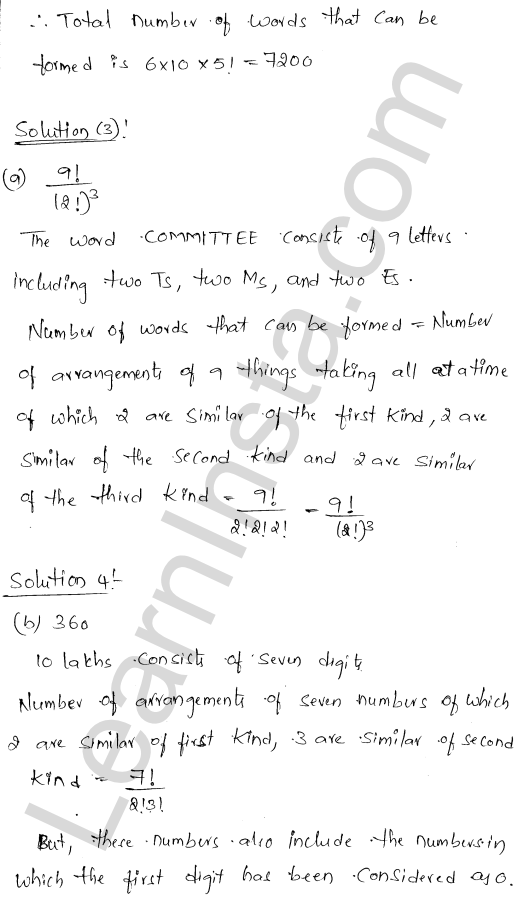 ∴ Total number of words that can be
formed is 6×10×5! = 7200
Solution (3)!
(a) 9!/(2!)³
The word COMMITTEE consists of 9 letters
including two Ts, two Ms, and two Es.
Number of words that can be formed = Number
of arrangements of 9 things taking all at a time
of which 2 are similar of the first kind, 2 are
similar of the second kind and 2 are similar
of the third kind = 9!/2!2!2! = 9!/(2!)³
Solution 4!-
(b) 360
10 lakhs consists of seven digits
Number of arrangements of seven numbers of which
2 are similar of first kind, 3 are similar of second
kind = 7!/2!3!
But, these numbers also include the numbers in
which the first digit has been considered as 0.
LearnInsta.com